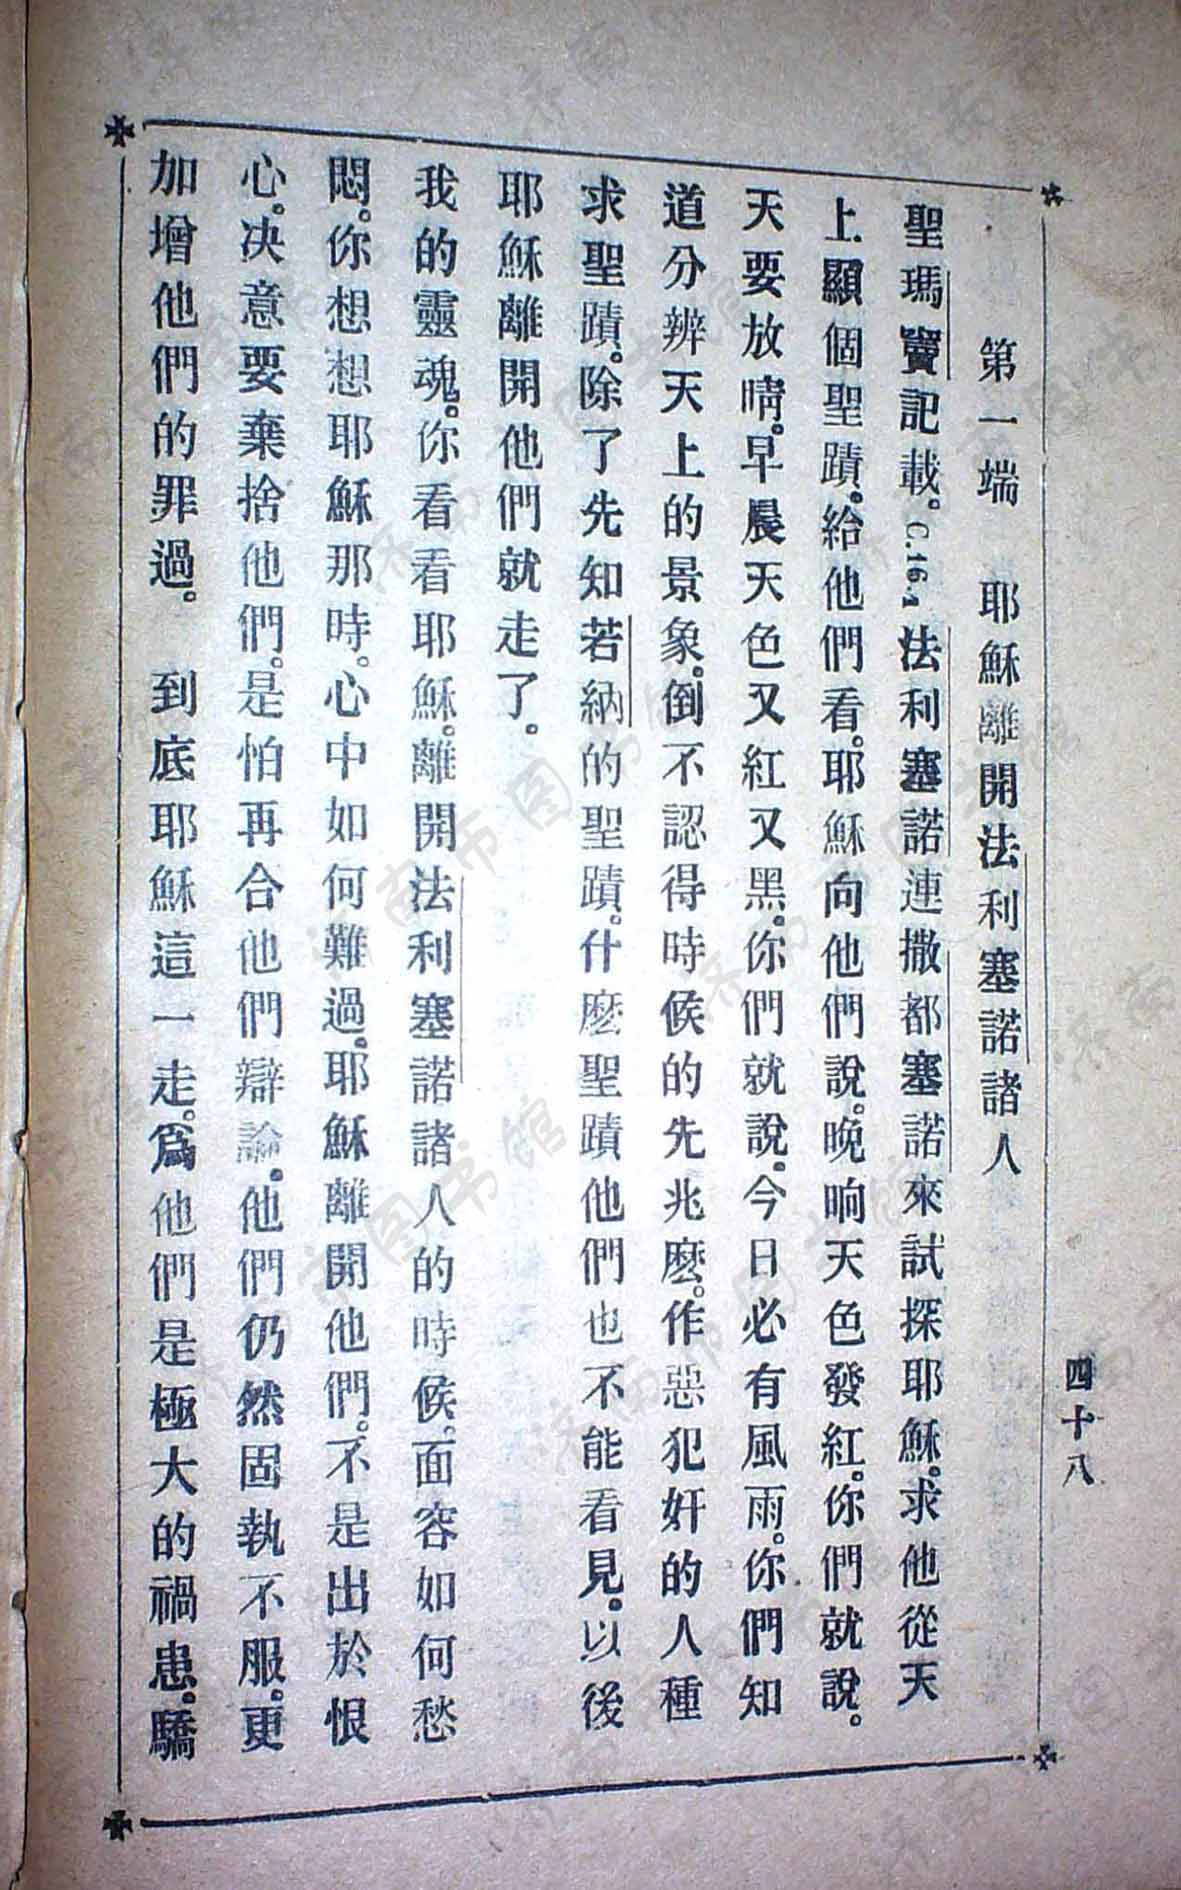 四十八
第一端　耶穌離開法利塞諾諸人
聖瑪竇記載。C.16.4法利塞諾連撒都塞諾來試探耶穌。求他從天
上顯個聖蹟。給他們看。耶穌向他們說。晚晌天色發紅。你們就說。
天要放晴。早晨天色又紅又黑。你們就說。今日必有風雨。你們知
道分辨天上的景象。倒不認得時候的先兆麼。作惡犯奸的人種
求聖蹟。除了先知若納的聖蹟。什麽聖蹟他們也不能看見。以後
耶穌離開他們就走了。
我的靈魂。你看看耶穌。離開法利塞諾諸人的時候。面容如何愁
悶。你想想耶穌那時。心中如何難過。耶穌離開他們。不是出於恨
心。决意要棄捨他們。是怕再合他們辯論。他們仍然固執不服。更
加增他們的罪過。　到底耶穌這一走。爲他們是極大的禍患。驕
济南市图书馆